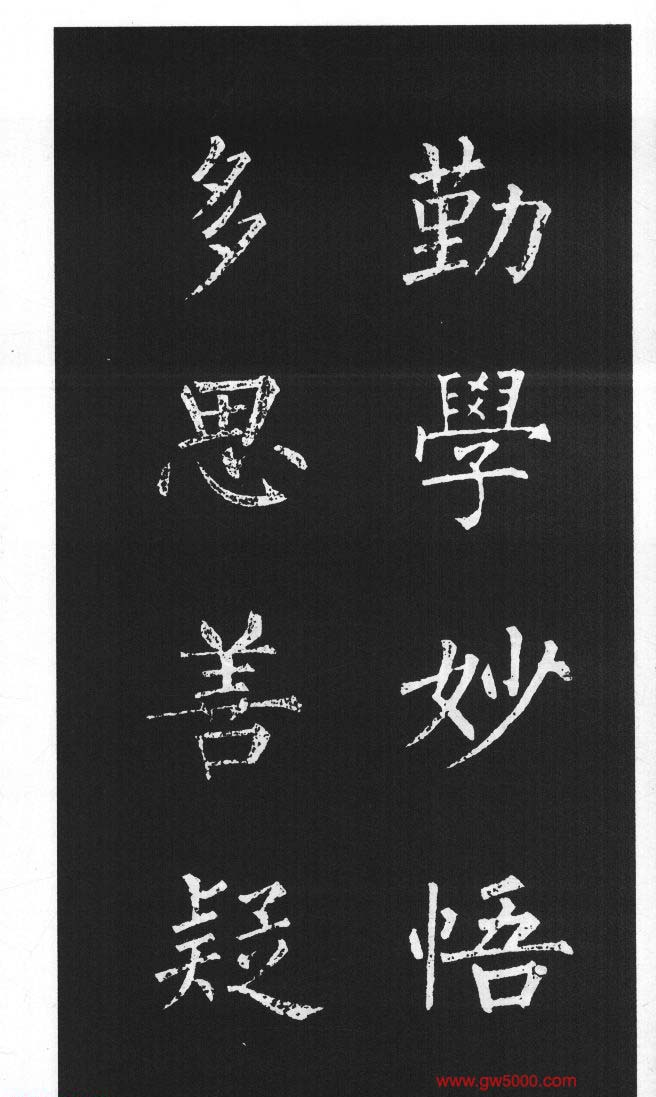 勤學妙悟
多思善疑
www.gw5000.com